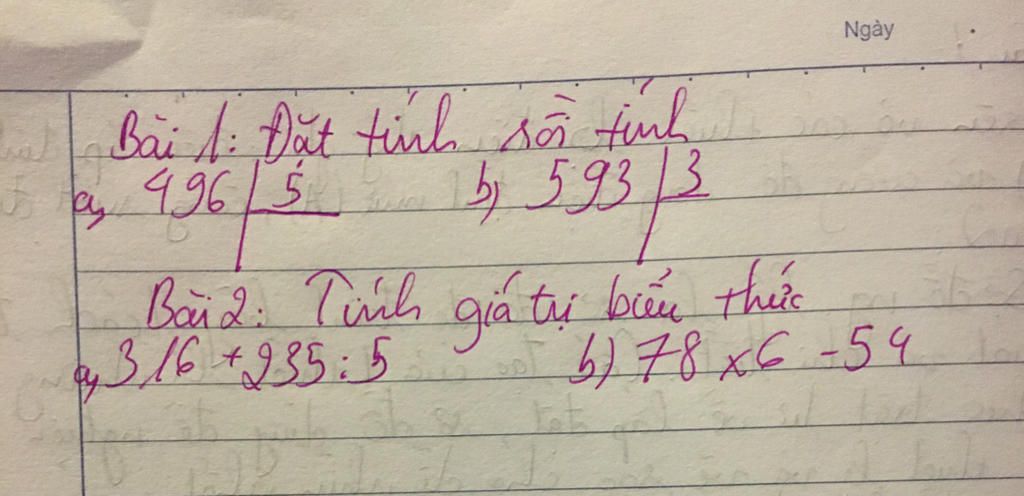 Ngày
Bài 1: Đặt tính rồi tính
a, 496 | 5 b) 593 | 3
Bài 2: Tính giá trị biểu thức
a, 316 + 235 : 5 b) 78 x 6 - 54